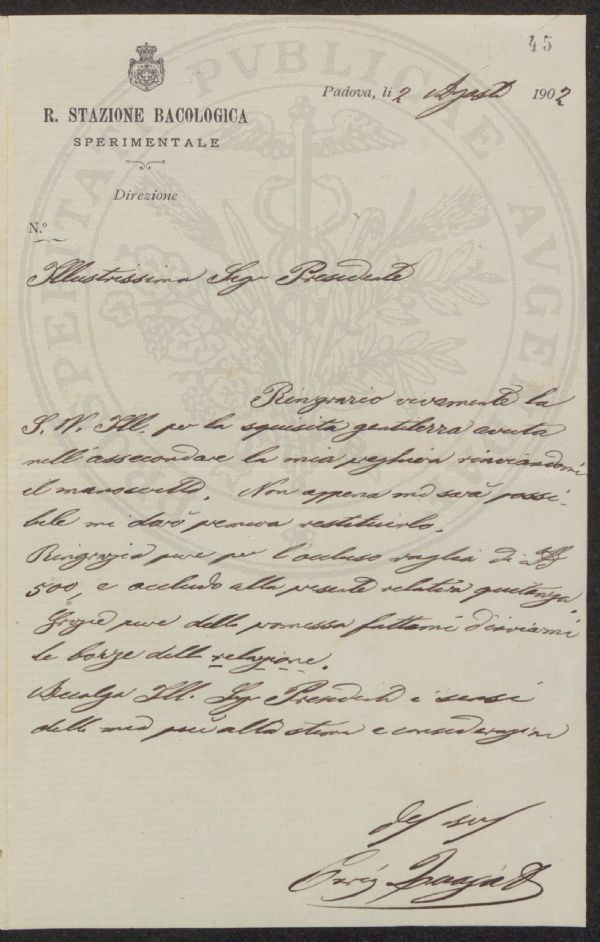 45
Padova, li 2 Agosto 1902
R. STAZIONE BACOLOGICA
SPERIMENTALE
Direzione
N.º
Illustrissimo Sigr Presidente
Ringrazio vivamente la
S. V. Ill. per la squisita gentilezza avuta
nell'assecondare la mia preghiera rinviandomi
il manoscritto. Non appena mi sarà possi-
bile mi darò premura restituirlo.
Ringrazio pure per l'accluso vaglia di
500, e accludo alla presente relativa quitanza.
Grazie pure della promessa fattami d'inviarmi
le bozze della relazione.
Accolga Ill. Sigr Presidente i sensi
della mia più alta stima e considerazione